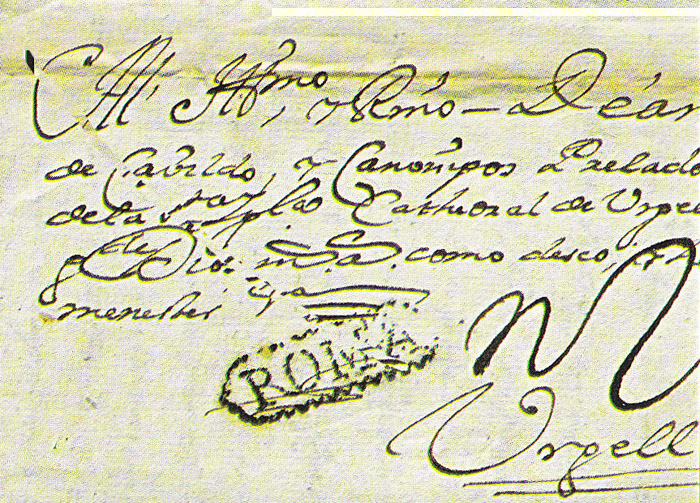 Al Ill.mo, y R.mo Deán
de Cavildo, y Canonigos Prelado
de la Sta Ygl.a Cathedral de Urgel
g.de Dios m.s a.s como deseo, y he
menester
ROMA
Urgell